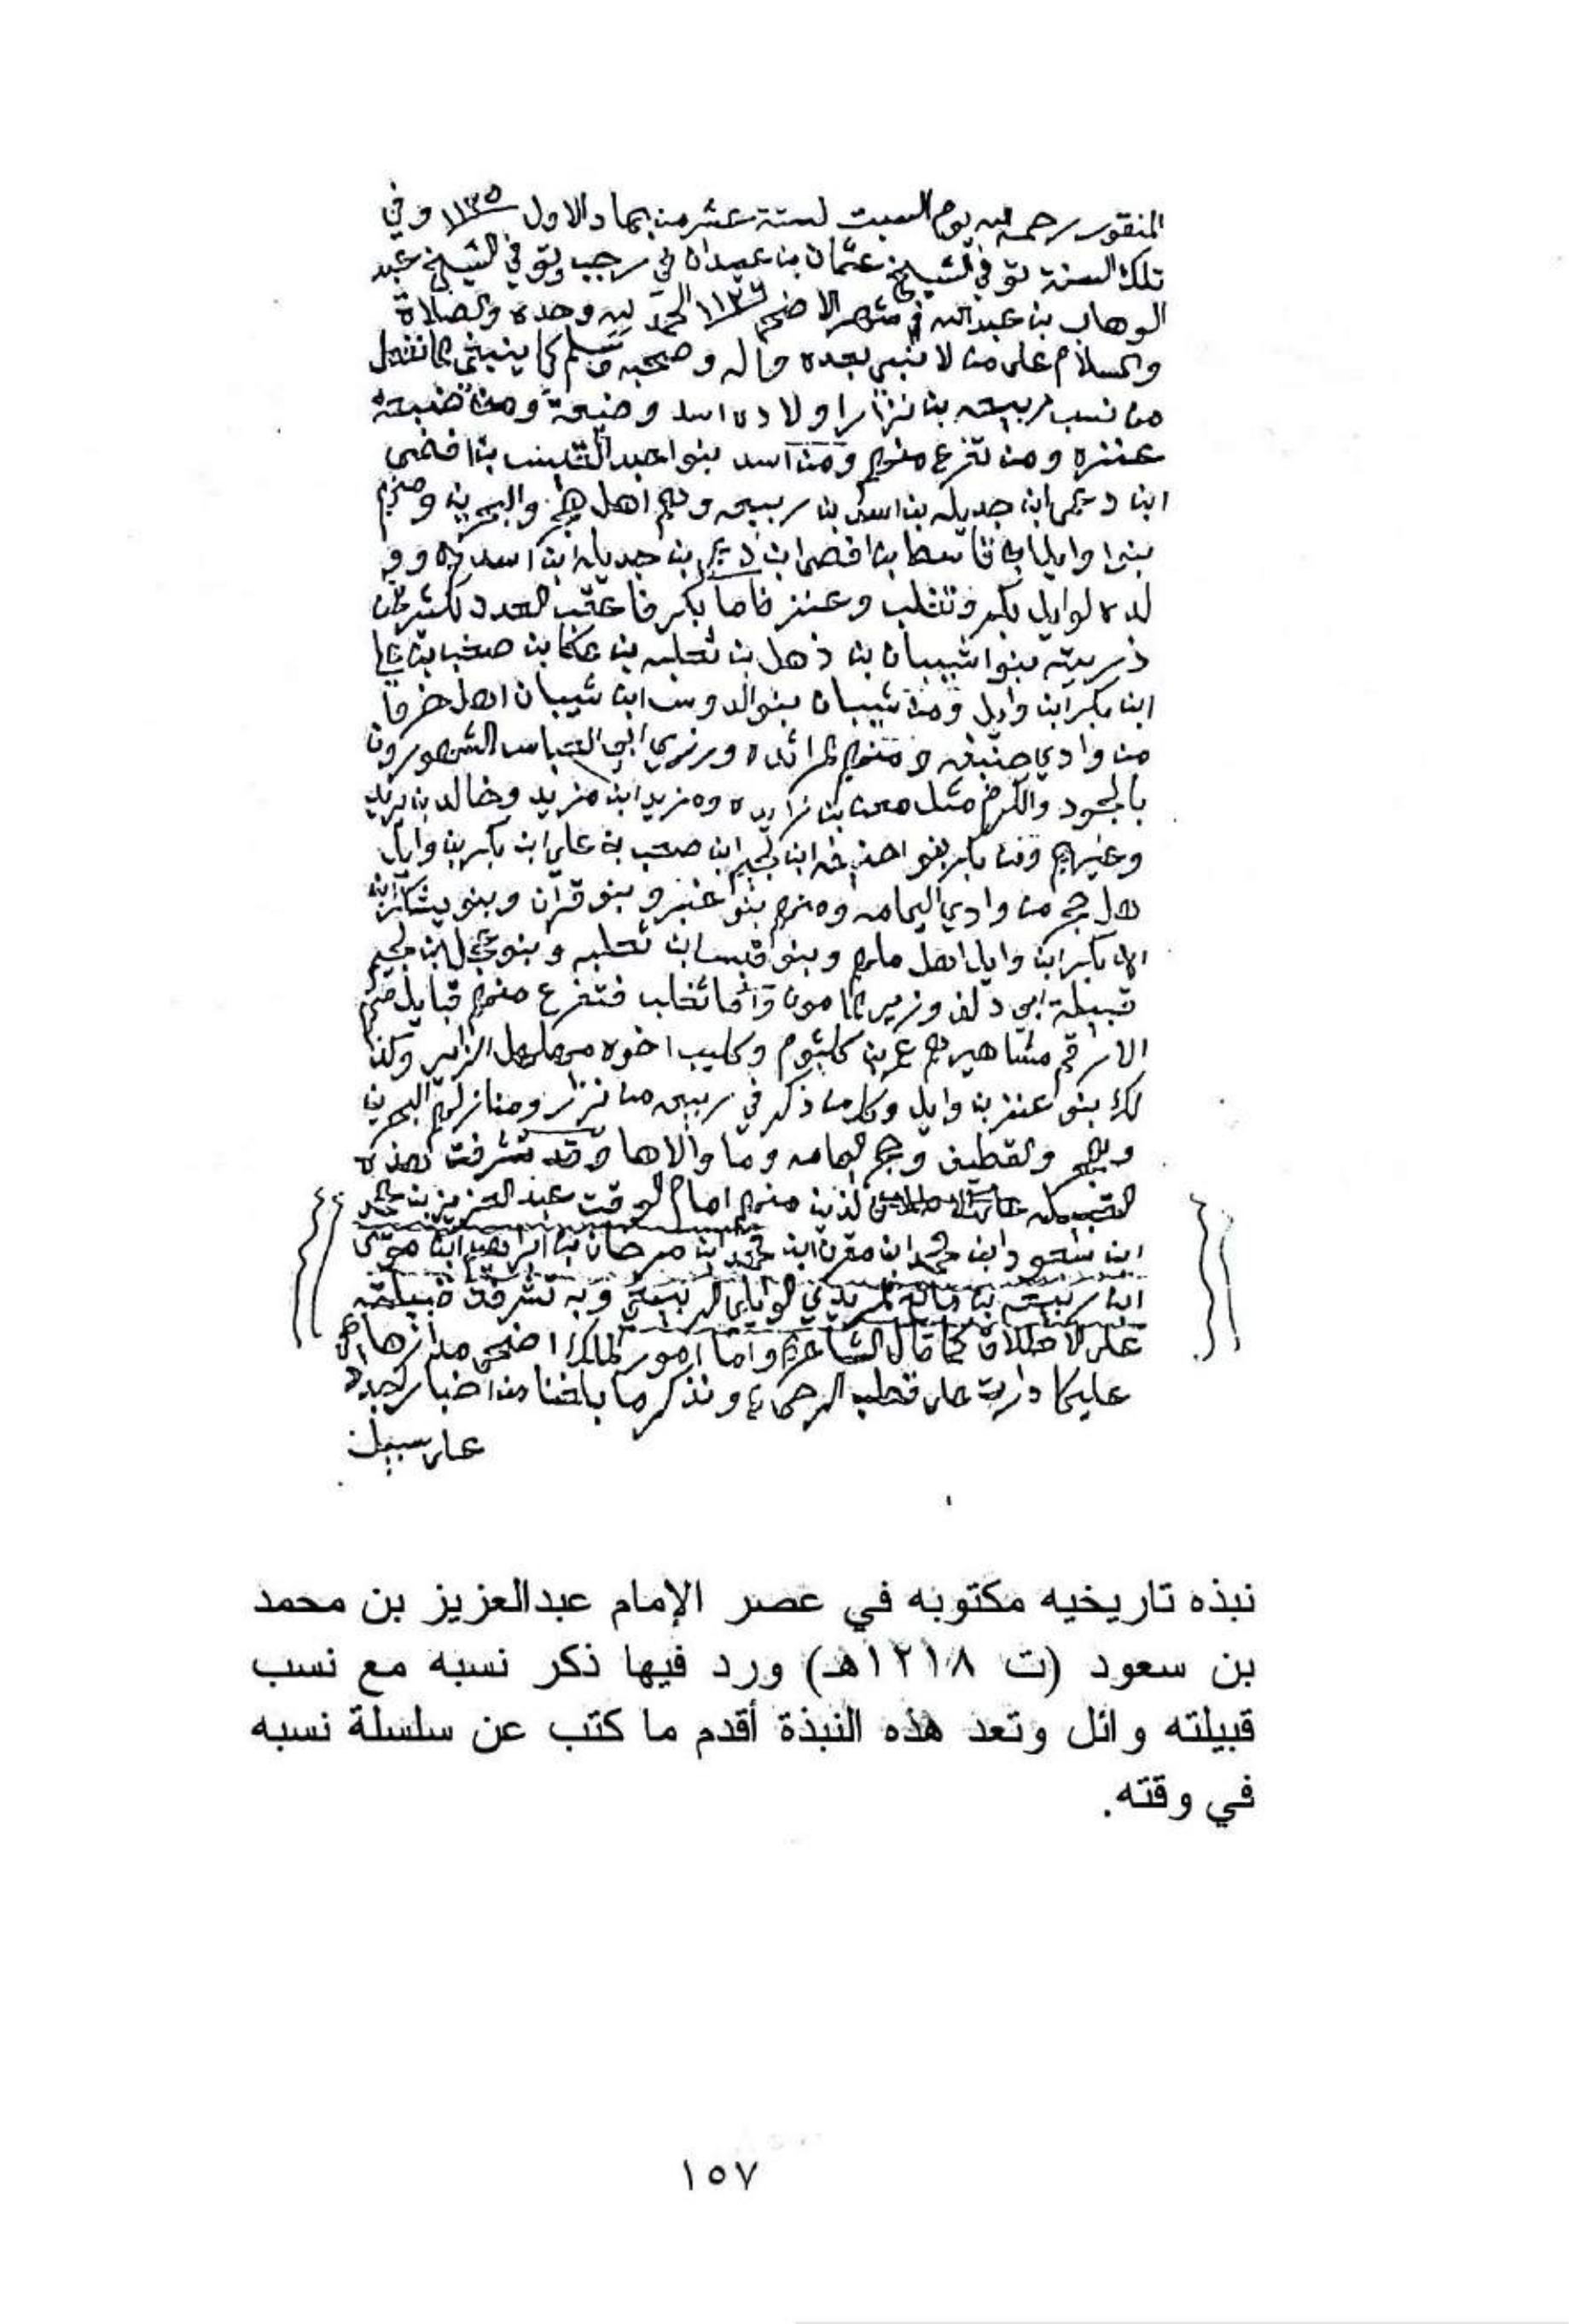 المنقور رحمه الله يوم السبت لستة عشر من جماد الاول ١١٣٥ وفي
تلك السنة توفي الشيخ عثمان بن عبدان في رجب وتوفي الشيخ عبد
الوهاب بن عبدالله في شهر الاضحى ١١٣٦ الحمد لله وحده والصلاة
والسلام على من لا نبي بعده واله وصحبه وسلم كما ينبغي
من نسب ربيعه بن نزار اولاده اسد وضبيعة ومن ضبيعة
عنزه ومن تفرع منهم ومن اسد بنوا عبد القيس بن افصى
ابن دعمي ابن جديله بن اسد بن ربيعه وهم اهل هجر والبحرين ومنهم
بنوا وايل ابن قاسط بن افصى ابن دعمي بن جديله ابن اسد
لده لوايل بكر وتغلب وعنز فاما بكر فاعقب العدد الكثير فمن
ذريته بنوا شيبان بن ذهل بن ثعلبه بن عكابه بن صعب بن علي
ابن بكر ابن وايل ومن شيبان بنو الدوس ابن شيبان اهل
من وادي حنيفه ومنهم المزائده ورزي ابي العباس المشهورون
بالجود والكرم مثل معن بن زايده ومزيد ابن مزيد وخالد بن يزيد
وغيرهم ومن بكر بنو احنيفه ابن لجيم ابن صعب بن علي ابن بكر بن وايل
هل حجر من وادي اليمامه ومنهم بنو غبر وبنو قران وبنو يشكر ابن
ابن بكر ابن وايل اهل ملهم وبنو قيس ابن ثعلبه وبنو عجل ابن لجيم
قبيلة ابي دلف وزير المامون واما تغلب فتفرع منهم قبايل منهم
الاراقم مشاهيرهم عمرو بن كلثوم وكليب اخوه مهلهل الزير وكذ
لك بنو عنز بن وايل وكلمن ذكر في ربيعه من نزار ومنازلهم البحرين
وهجر والقطيف وحجر اليمامه وما والاها وقد تشرفت هذه
القبيله الذين منهم امام الوقت عبد العزيز بن محمد
ابن سعود ابن محمد ابن مقرن ابن محمد ابن مرخان بن ابراهيم ابن موسى
ابن ربيعه بن مانع المريدي الوايلي الربيعي وبه تشرفت قبيلته
على الاطلاق كما قال الشاعر واما امور الملك اضحى مدارها
عليكما دارت على قطب الرحى ونذكر ما بلغنا من اخبار
على سبيل
نبذه تاريخيه مكتوبه في عصر الإمام عبدالعزيز بن محمد
بن سعود (ت ١٢١٨هـ) ورد فيها ذكر نسبه مع نسب
قبيلته وائل وتعد هذه النبذة أقدم ما كتب عن سلسلة نسبه
في وقته.
١٥٧